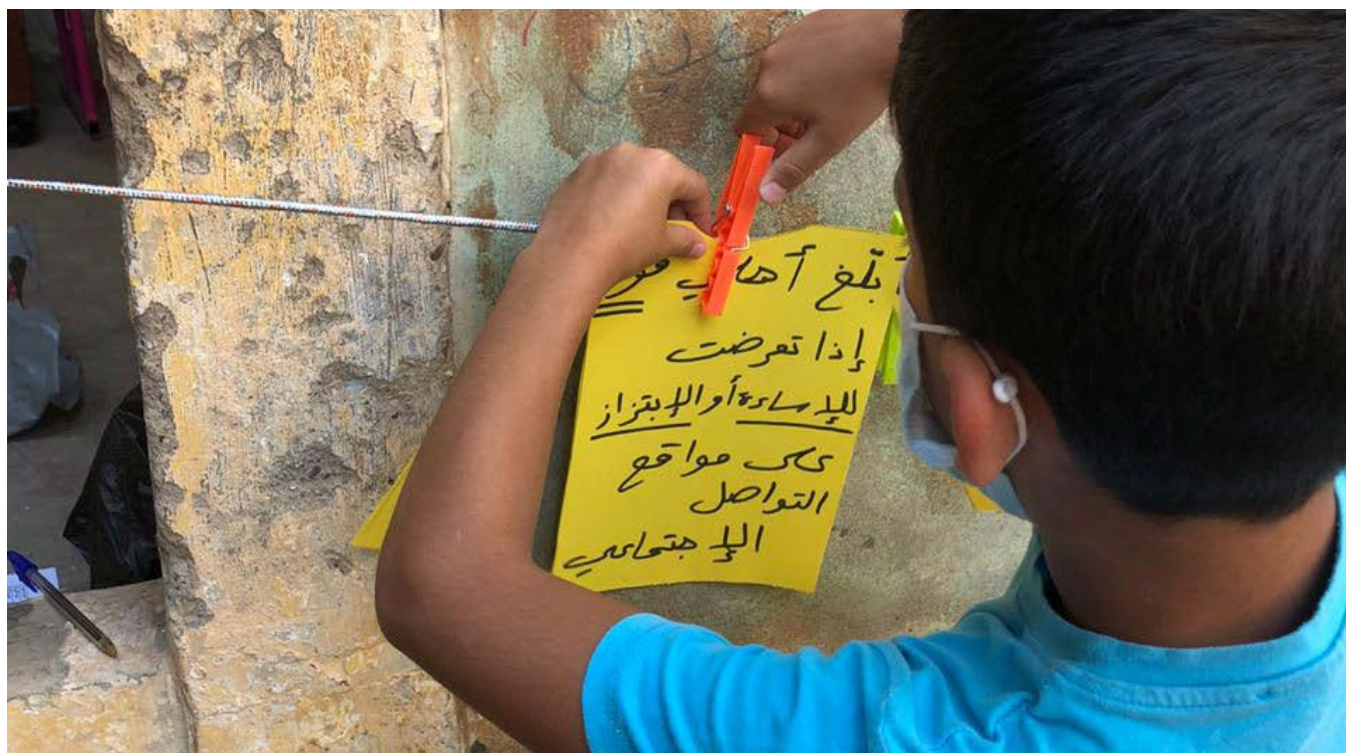 أبلّغ أهلي
إذا تعرضت
للإساءة أو الإبتزاز
على مواقع
التواصل
الإجتماعي